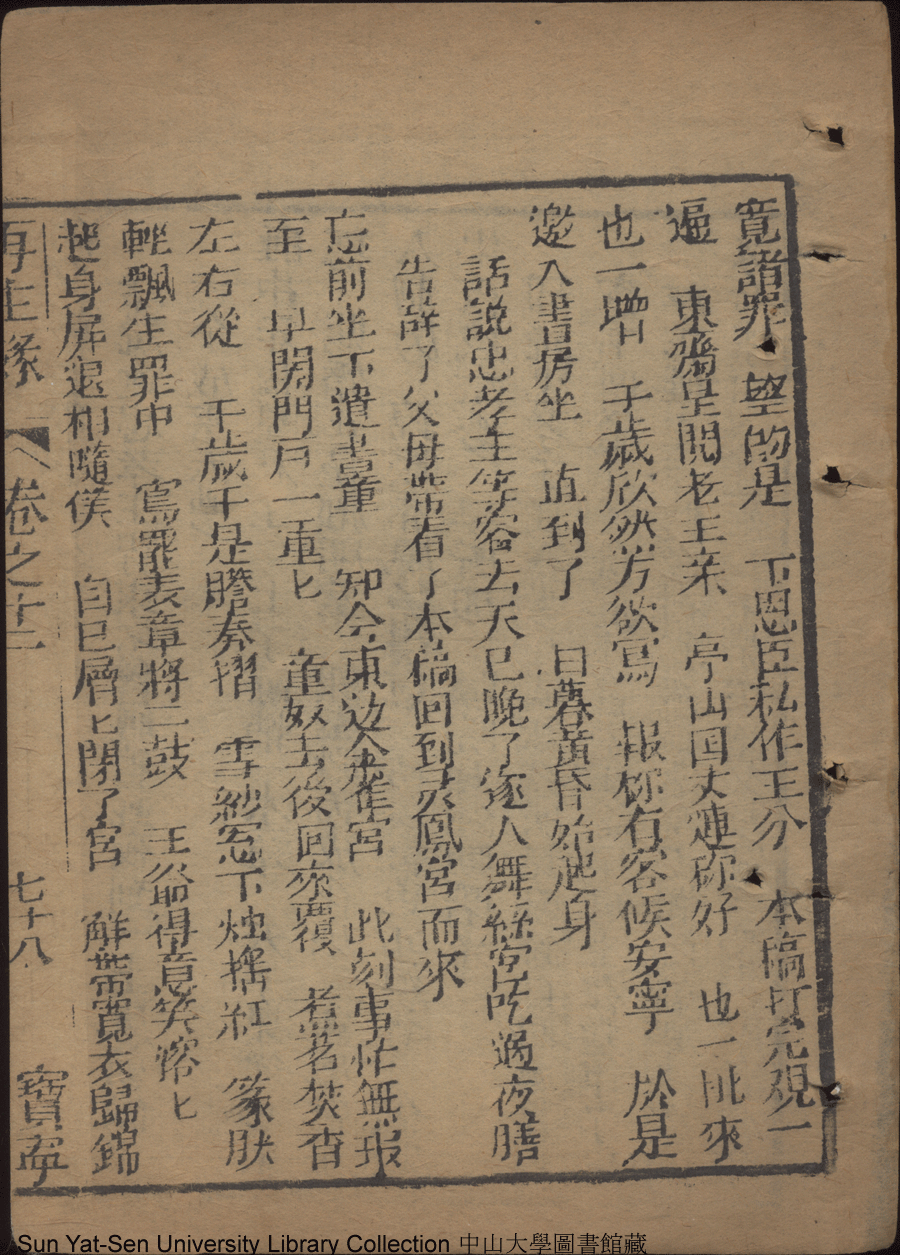 寛諸罪 望的是 下恩臣私作王分 本稿打完覌一
遍 東齋呈閱老王亲 亭山囬丈連称好 也一批來
也一增 千歲欣然方欲寫 報称有客候安寧 於是
邀入書房坐 直到了 日暮黄昏始起身
話說忠孝王等客去天已晚了逐入舞綵宮吃過夜膳
告辞了父母帶着了本稿回到灵鳳宮而來
忘前坐下遣書童 知会東边金雀宮 此刻事忙無瑕
至 早関門戶一重匕 童奴去後回來覆 煮茗焚香
左右從 千歲于是謄奏摺 雪紗窓下烛搖紅 篆
輕飄生罪中 寫罷表章將二鼓 王爺得意笑溶匕
起身屏退相隨侯 自已層匕閉了宮 觧帶寛衣歸錦
再生緣 卷之十二 七十八 寶寧
Sun Yat-Sen University Library Collection 中山大學圖書館藏